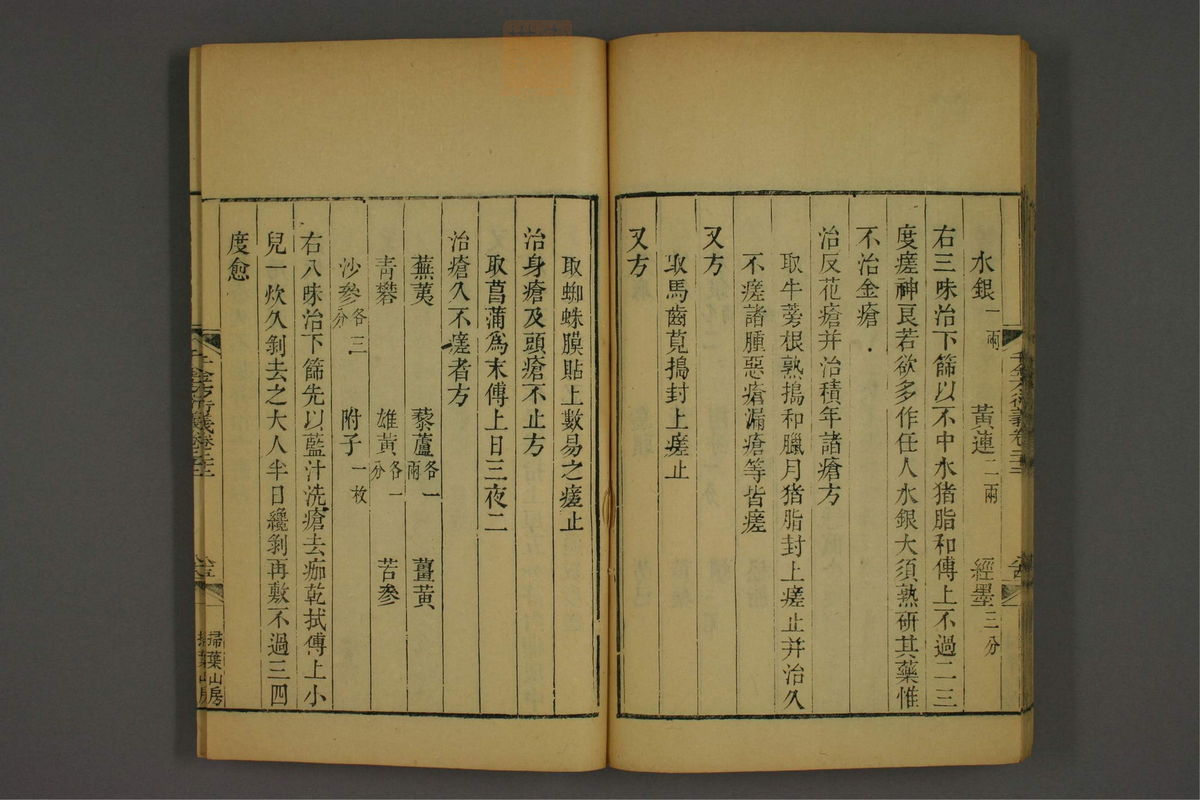 水銀一兩 黃連二兩 經墨三分
右三味治下篩以不中水猪脂和傅上不過二三
度瘥神良若欲多作任人水銀大須熟研其藥惟
不治金瘡
治反花瘡并治積年諸瘡方
取牛蒡根熟搗和臘月猪脂封上瘥止并治久
不瘥諸腫惡瘡漏瘡等皆瘥
又方
取馬齒莧搗封上瘥止
又方
取蜘蛛膜貼上數易之瘥止
治身瘡及頭瘡不止方
取菖蒲為末傅上日三夜二
治瘡久不瘥者方
蕪荑 藜蘆各一兩 薑黃
青礬 雄黃各一分 苦參
沙參各三分 附子一枚
右八味治下篩先以藍汁洗瘡去痂乾拭傅上小
兒一炊久剝去之大人半日纔剝再敷不過三四
度愈
千金方衍義卷
掃葉山房